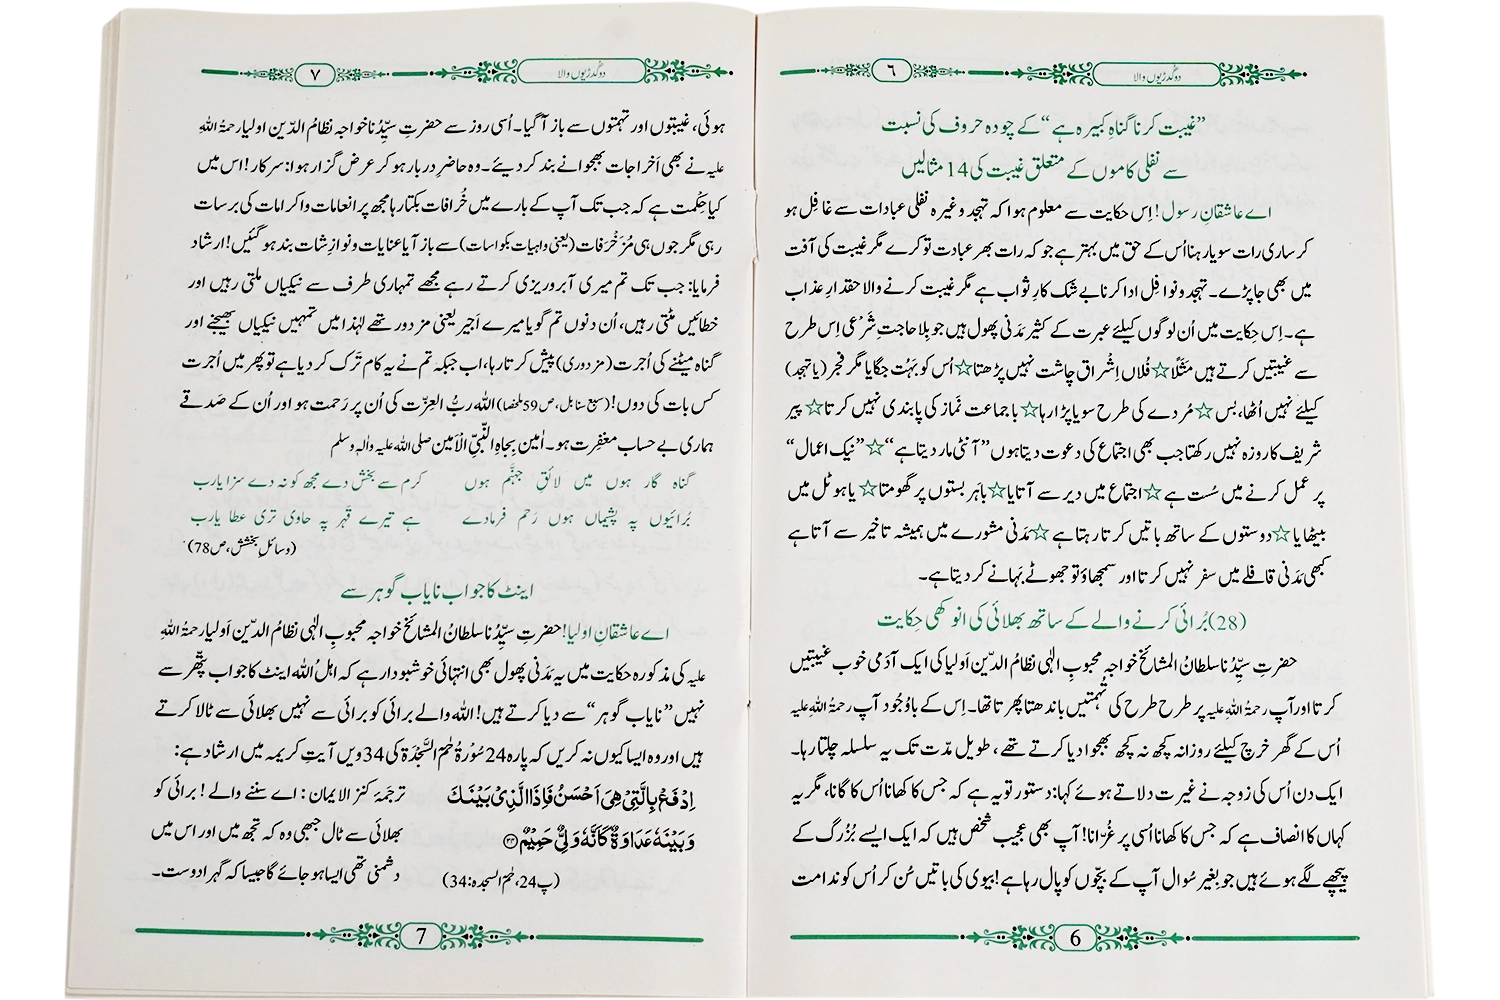 دو گدڑیوں والا
٦
”غیبت کرنا گناہِ کبیرہ ہے“ کے چودہ حروف کی نسبت
سے نفلی کاموں کے متعلق غیبت کی 14 مثالیں
اے عاشقانِ رسول! اِس حکایت سے معلوم ہوا کہ تہجد وغیرہ نفلی عبادات سے غافل ہو
کر ساری رات سویا رہنا اُس کے حق میں بہتر ہے جو کہ رات بھر عبادت تو کرے مگر غیبت کی آفت
میں بھی جا پڑے۔ تہجد و نوافل ادا کرنا بے شک کارِ ثواب ہے مگر غیبت کرنے والا حقدارِ عذاب
ہے۔ اِس حِکایت میں اُن لوگوں کیلئے عبرت کے کثیر مَدَنی پھول ہیں جو بِلا حاجتِ شَرعی اِس طرح
سے غیبتیں کرتے ہیں مَثَلًا ☆ فُلاں اِشراق چاشت نہیں پڑھتا ☆ اُس کو بَہُت جگایا مگر فجر (یا تہجد)
کیلئے نہیں اُٹھا، بس ☆ مُردے کی طرح سویا پڑا رہا ☆ با جماعت نَماز کی پابندی نہیں کرتا ☆ پیر
شریف کا روزہ نہیں رکھتا جب بھی اجتماع کی دعوت دیتا ہوں ”آنٹی مار دیتا ہے“ ☆ ”نیک اعمال“
پر عمل کرنے میں سُست ہے ☆ اجتماع میں دیر سے آتا یا ☆ باہَر بستوں پر گھومتا ☆ یا ہوٹل میں
بیٹھا یا ☆ دوستوں کے ساتھ باتیں کرتا رہتا ہے ☆ مَدَنی مشورے میں ہمیشہ تاخیر سے آتا ہے
کبھی مَدَنی قافلے میں سفر نہیں کرتا اور سمجھاؤ تو جھوٹے بَہانے کر دیتا ہے۔
(28) بُرائی کرنے والے کے ساتھ بھلائی کی انوکھی حِکایت
حضرتِ سیِّدُنا سلطانُ المشائخ خواجہ محبوبِ الٰہی نظامُ الدّین اَولیا کی ایک آدَمی خوب غیبتیں
کرتا اور آپ رحمۃُ اللهِ علیہ پر طرح طرح کی تُہمتیں باندھتا پھرتا تھا۔ اِس کے باوُجُود آپ رحمۃُ اللهِ علیہ
اُس کے گھر خرچ کیلئے روزانہ کچھ نہ کچھ بھجوا دیا کرتے تھے، طویل مدّت تک یہ سلسلہ چلتا رہا۔
ایک دن اُس کی زوجہ نے غیرت دلاتے ہوئے کہا: دستور تو یہ ہے کہ جس کا کھانا اُس کا گانا، مگر یہ
کہاں کا انصاف ہے کہ جس کا کھانا اُسی پر غُرّانا! آپ بھی عجیب شخص ہیں کہ ایک ایسے بُزُرگ کے
پیچھے لگے ہوئے ہیں جو بِغیر سُوال آپ کے بچّوں کو پال رہا ہے! بیوی کی باتیں سُن کر اُس کو ندامت
6
دو گدڑیوں والا
٧
ہوئی، غیبتوں اور تہمتوں سے باز آ گیا۔ اُسی روز سے حضرتِ سیِّدُنا خواجہ نظامُ الدّین اولیا رحمۃُ اللهِ
علیہ نے بھی اَخراجات بھجوانے بند کر دیئے۔ وہ حاضرِ دربار ہو کر عرض گزار ہوا: سرکار! اس میں
کیا حِکمت ہے کہ جب تک آپ کے بارے میں خُرافات بکتا رہا مجھ پر انعامات و اکرامات کی برسات
رہی مگر جوں ہی مُزَخرَفات (یعنی واہیات بکواسات) سے باز آیا عنایات و نوازِشات بند ہو گئیں! ارشاد
فرمایا: جب تک تم میری آبرو ریزی کرتے رہے مجھے تمہاری طرف سے نیکیاں ملتی رہیں اور
خطائیں مٹتی رہیں، اُن دنوں تم گویا میرے اَجیر یعنی مزدور تھے لہٰذا میں تمہیں نیکیاں بھیجنے اور
گناہ میٹنے کی اُجرت (مزدوری) پیش کرتا رہا، اب جبکہ تم نے یہ کام تَرک کر دیا ہے تو پھر میں اُجرت
کس بات کی دوں! (سبع سنابل، ص 59 ملخصا) الله ربُّ العِزّت کی اُن پر رَحمت ہو اور اُن کے صَدقے
ہماری بے حساب مغفِرت ہو۔ اٰمین بِجاہِ النَّبِیِّ الْاَمین صلی الله علیہ واٰلہٖ وسلم
گناہ گار ہوں میں لائقِ جہنَّم ہوں کرم سے بخش دے مجھ کو نہ دے سزا یارب
بُرائیوں پہ پشیماں ہوں رَحم فرمادے ہے تیرے قَہر پہ حاوی تری عطا یارب
(وسائلِ بخشش، ص78)
اینٹ کا جواب نایاب گوہر سے
اے عاشقانِ اولیا! حضرتِ سیِّدُنا سلطانُ المشائخ خواجہ محبوبِ الٰہی نظامُ الدّین اولیا رحمۃُ اللهِ
علیہ کی مذکورہ حکایت میں یہ مَدَنی پھول بھی انتہائی خوشبودار ہے کہ اہلُ الله اینٹ کا جواب پتھّر سے
نہیں ”نایاب گوہر“ سے دیا کرتے ہیں! الله والے برائی کو برائی سے نہیں بھلائی سے ٹالا کرتے
ہیں اور وہ ایسا کیوں نہ کریں کہ پارہ 24 سُوْرَۃُ حٰمٓ السَّجْدَۃ کی 34 ویں آیتِ کریمہ میں ارشاد ہے:
اِدْفَعْ بِالَّتِیْ هِیَ اَحْسَنُ فَاِذَا الَّذِیْ بَیْنَكَ ترجَمۂ کنز الایمان: اے سننے والے! برائی کو
وَ بَیْنَهٗ عَدَاوَةٌ كَاَنَّهٗ وَلِیٌّ حَمِیْمٌ ﴿۳۴﴾ بھلائی سے ٹال جبھی وہ کہ تجھ میں اور اس میں
(پ24، حٰمٓ السجدہ: 34) دشمنی تھی ایسا ہو جائے گا جیسا کہ گہرا دوست۔
7